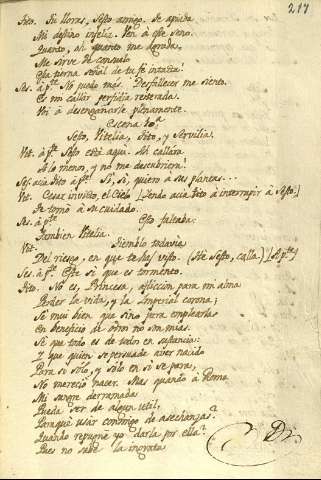 217
Tito. Tu lloras, Sesto amigo. Se apiada
Mi destino infeliz. Ven á este seno.
Quanto, ah quanto me agrada,
Me sirve de consuelo
Esta tierna señal de tu fé intacta!
Ses. á pte. No puedo más. Desfallecer me siento.
Es mi callar perfidia reiterada.
Voi á desengañarle plenamente.
Escena 10ª
Sesto, Vitelia, Tito, y Servilia.
Vit. á pte. Sesto está aqui. Mi callará
A lo menos, y no me descubriera!
Ses. acia Tito á pte. Si, si, quiero á sus plantas...
Vit. Cesar invicto, el Cielo [Yendo acia Tito á interrupir á Sesto.]
Se tornó à su cuidado.
Ses. á pte. Esto faltaba:
Tambien Vitelia.
Vit. Tiemblo todavia
Del riesgo, en que te has visto. (Ah Sesto, calla.) [A pte.]
Ses. á pte. Este si que es tormento.
Tito. No es, Princesa, afliccion para mi alma
Perder la vida, y la Imperial corona;
Se mui bien que sino para emplearlas
En beneficio de otros no son mias.
Sé que todo es de todos en sustancia:
I que quien se persuade aver nacido
Para si sólo, y sólo en si se para,
No mereció nacer. Mas quando á Roma
Mi sangre derramada
Pueda ser de algun util,
Paraqué usar conmigo de asechanzas?
Quando repugné yo darla por ella?
Pues no sabe la ingrata